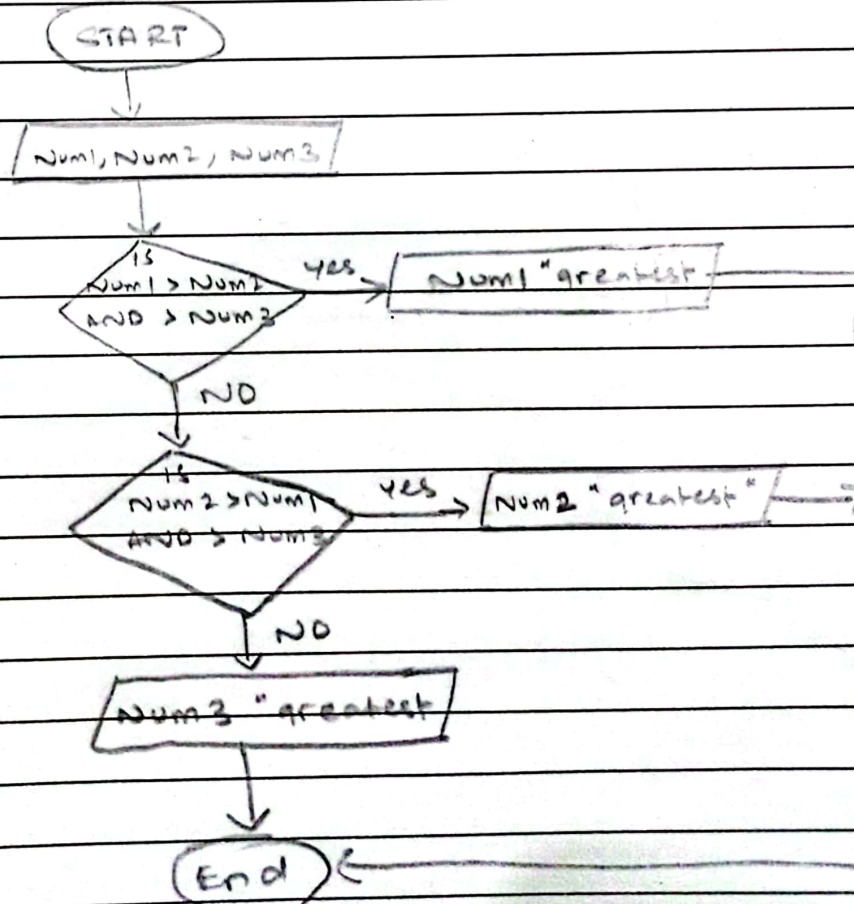 START
Num1, Num2, Num3
is
Num1 > Num2
AND > Num3
yes
Num1 "greatest
NO
is
Num2 > Num1
AND > Num3
yes
Num2 "greatest"
NO
Num3 "greatest
End